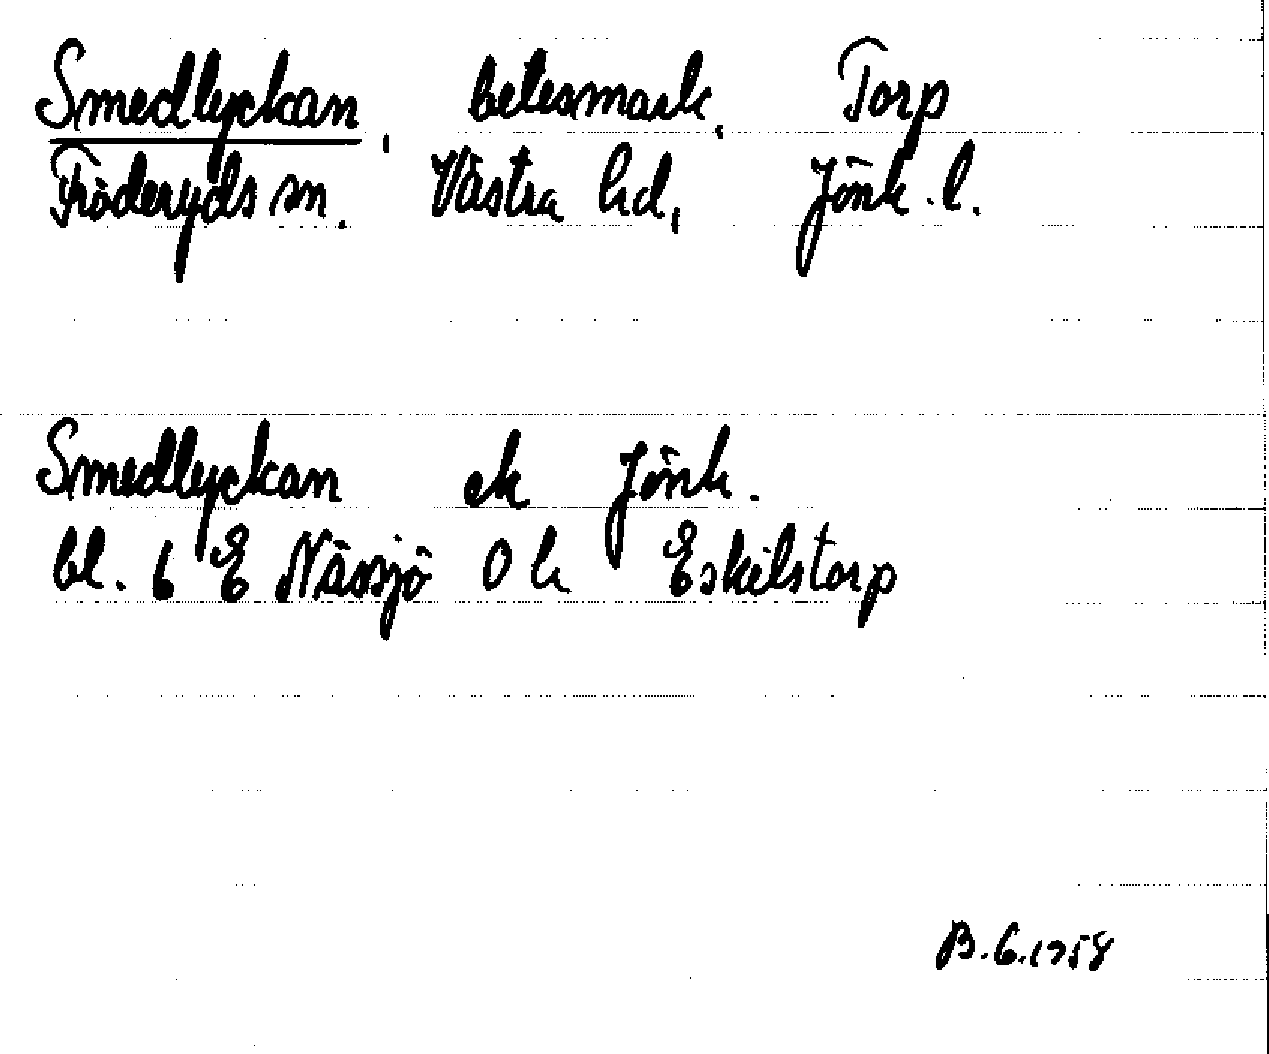 Smedlyckan, betesmark, Torp
Fröderyds sn. Västra hd, Jönk.l.
Smedlyckan ek Jönk.
bl. 6 E Nässjö Ok Eskilstorp
B.G.1958